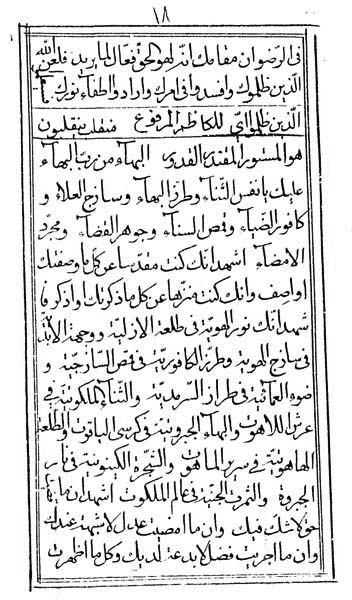 ١٨
فی الرضوان مقامك انه لهو الحق فعال لما يريد فلعن الله
الذين ظلموك وافسدوا فی امرك وارادوا اطفاء نورك
الذين ظلموا ای للكاظم المرفوع منقلب ينقلبون
هو المستور المقتدر القدير البهاء من رب البهاء
عليك يا نفس الثناء وطرز البهاء وساذج العلاء و
كافور الضياء وقمص السناء وجوهر القضاء ومجرد
الامضاء اشهد انك كنت مقدسا عن كل ما وصفتك
او اصف وانك كنت منزها عن كل ما ذكرتك او اذكر فا
شهد انك نور الهوية فی طلعة الازلية ووجهة الابدية
فی ساذج الهوية وطرز الكافورية فی قمص الساذجية و
ضوء العمائية فی طراز السرمدية والثناء الملكوتية فی
عرش اللاهوت والبهاء الجبروتية فی كرسی الياقوت والطلعة
الهاهوتية فی سرير الماهوت والشجرة الكينونية فی نار
الجبروة والثمرة الجنية فی عالم الملكوت اشهد ان ما
حق لا شك فيك وان ما امضيت عدل لا شبهة عندك
وان ما اجريت فضل لا بدعة لديك وكل ما اظهرت